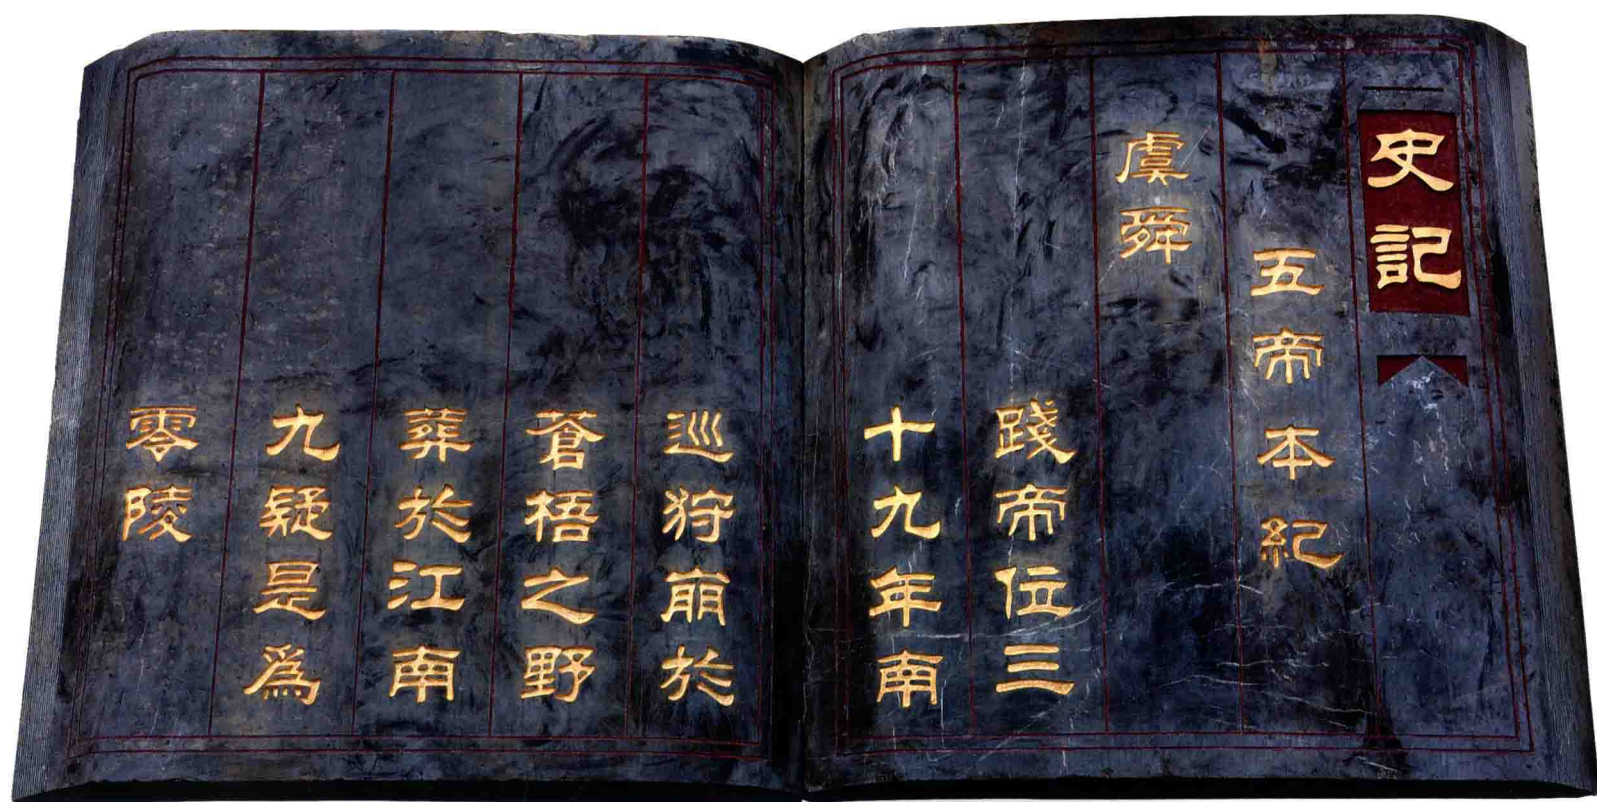 史記
五帝本紀
虞舜
踐帝位三
十九年南
巡狩崩於
蒼梧之野
葬於江南
九疑是為
零陵